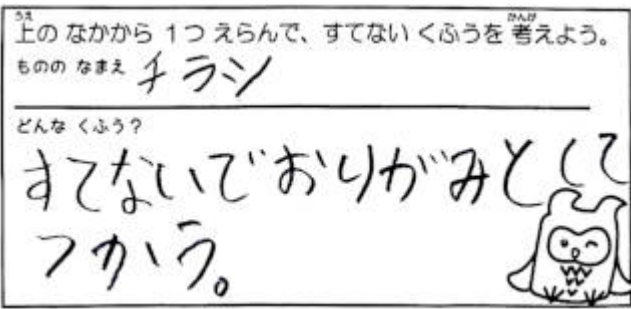 上の なかから 1つ えらんで、すてない くふうを 考えよう。
ものの なまえ チラシ
どんな くふう？
すてないでおりがみとして
つかう。